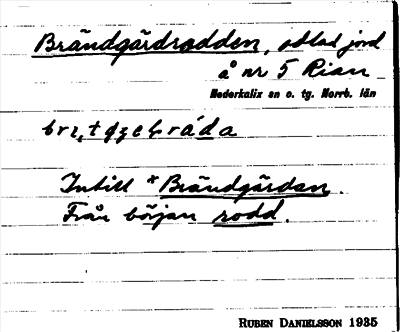 Brändgärdrodden, odlad jord
å nr 5 Rian
Nederkalix sn o. tg. Norrb. län
Intill *Brändgärdan.
Från början rodd.
RUBEN DANIELSSON 1935